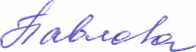 Павлова